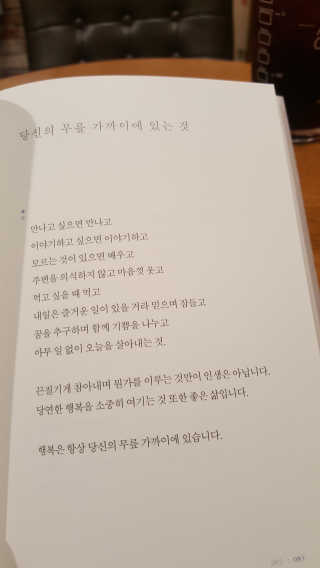 당신의 무릎 가까이에 있는 것
만나고 싶으면 만나고
이야기하고 싶으면 이야기하고
모르는 것이 있으면 배우고
주변을 의식하지 않고 마음껏 웃고
먹고 싶을 때 먹고
내일은 즐거운 일이 있을 거라 믿으며 잠들고
꿈을 추구하며 함께 기쁨을 나누고
아무 일 없이 오늘을 살아내는 것.
끈질기게 참아내며 뭔가를 이루는 것만이 인생은 아닙니다.
당연한 행복을 소중히 여기는 것 또한 좋은 삶입니다.
행복은 항상 당신의 무릎 가까이에 있습니다.